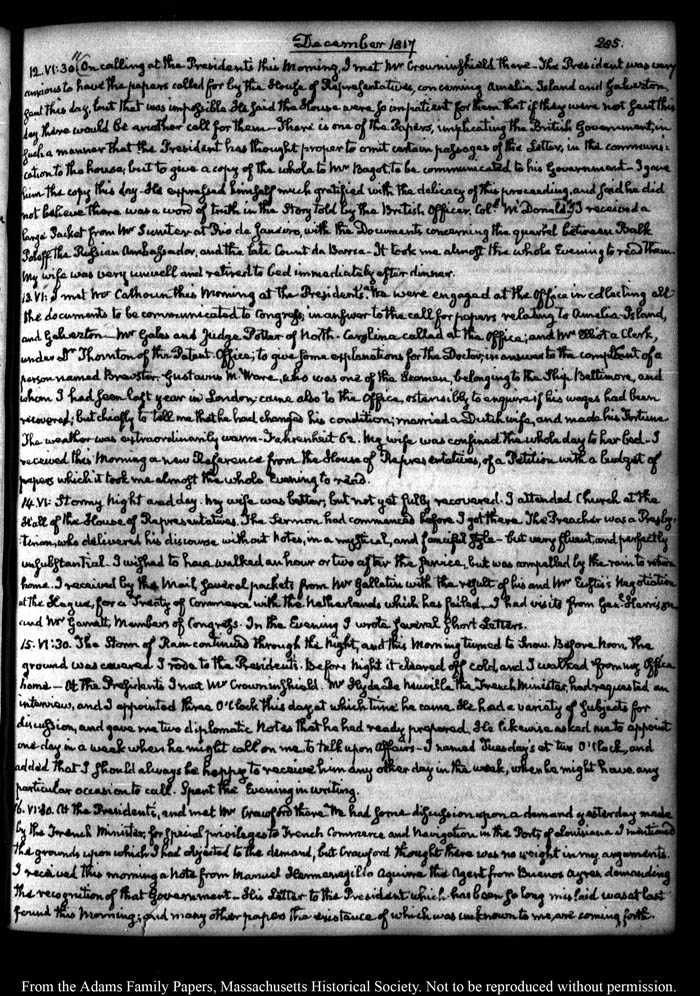 December 1817 285.
12. VI:30. On calling at the Presidents this Morning, I met Mr Crowninshield there. The President was very
anxious to have the papers called for by the House of Representatives, concerning Amelia Island and Galveston,
sent this day, but that was impossible. He said the House were so impatient for them that if they were not sent this
day there would be another call for them. There is one of the Papers, implicating the British Government, in
such a manner that the President has thought proper to omit certain passages of the Letter, in the communi-
cation to the house; but to give a copy of the whole to Mr Bagot, to be communicated to his Government. I gave
him the copy this day. He expressed himself much gratified with the delicacy of this proceeding, and said he did
not believe there was a word of truth in the Story told by the British Officer, Coll. McDonald. I received a
large Packet from Mr Sumter at Rio de Janeiro, with the Documents concerning the quarrel between Balk
Poleff, the Russian Ambassador, and the late Count da Barca. It took me almost the whole Evening to read them.
My wife was very unwell and retired to bed immediately after dinner.
13. VI: I met Mr Calhoun this Morning at the Presidents. We were engaged at the Office in collecting all
the documents to be communicated to Congress, in answer to the call for papers relating to Amelia Island,
and Galveston. Mr Gales and Judge Potter of North-Carolina called at the Office; and Mr Elliot a Clerk,
under Dr Thornton of the Patent Office; to give some explanations for the Doctor, in answer to the complaint of a
person named Brewster. Gustavus M. Ware, who was one of the Seamen, belonging to the Ship Baltimore, and
whom I had seen last year in London came also to the Office, ostensibly to enquire if his wages had been
recovered; but chiefly to tell me that he had changed his condition; married a Dutch wife, and made his Fortune
The weather was extraordinarily warm. Fahrenheit 62. My wife was confined the whole day to her bed. I
received this Morning a new Reference from the House of Representatives, of a Petition with a budget of
papers which it took me almost the whole Evening to read.
14. VI: Stormy Night and day. My wife was better, but not yet fully recovered. I attended Church at the
Hall of the House of Representatives. The Sermon had commenced before I got there. The Preacher was a Presby-
terian, who delivered his discourse without Notes, in a mystical, and fanciful style - but very fluent, and perfectly
unsubstantial. I wished to have walked an hour or two after the service, but was compelled by the rain to return
home. I received by the Mail, several packets from Mr Gallatin with the result of his and Mr Eustis's Negotiation
at the Hague, for a Treaty of Commerce with the Netherlands which has failed. I had visits from Genl. Harrison
and Mr Garnett, Members of Congress. In the Evening I wrote several short Letters.
15. VI:30. The Storm of Rain continued through the Night, and this Morning turned to Snow. Before Noon the
ground was covered. I rode to the Presidents. Before night it cleared off cold, and I walked from my Office
home - At the Presidents I met Mr Crowninshield. Mr Hyde de Neuville the French Minister, had requested an
interview, and I appointed three O'Clock this day, at which time he came. He had a variety of subjects for
discussion, and gave me two diplomatic Notes that he had ready prepared. He likewise asked me to appoint
one day in a week when he might call on me to talk upon Affairs - I named Tuesday's at two O'Clock, and
added that I should always be happy to receive him any other day in the week, when he might have any
particular occasion to call. Spent the Evening in writing.
16. VI:30. At the Presidents, and met Mr Crawford there. We had some discussion upon a demand yesterday made
by the French Minister, for special privileges to French Commerce and Navigation in the Ports of Louisiana. I mentioned
the grounds upon which I had objected to the demand, but Crawford thought there was no weight in my arguments.
I received this morning a Note from Manuel Hermenegildo Aguirre the Agent from Buenos Ayres, demanding
the recognition of that Government - His Letter to the President which has been so long mislaid was at last
found this Morning; and many other papers the existence of which was unknown to me, are coming forth.
From the Adams Family Papers, Massachusetts Historical Society. Not to be reproduced without permission.